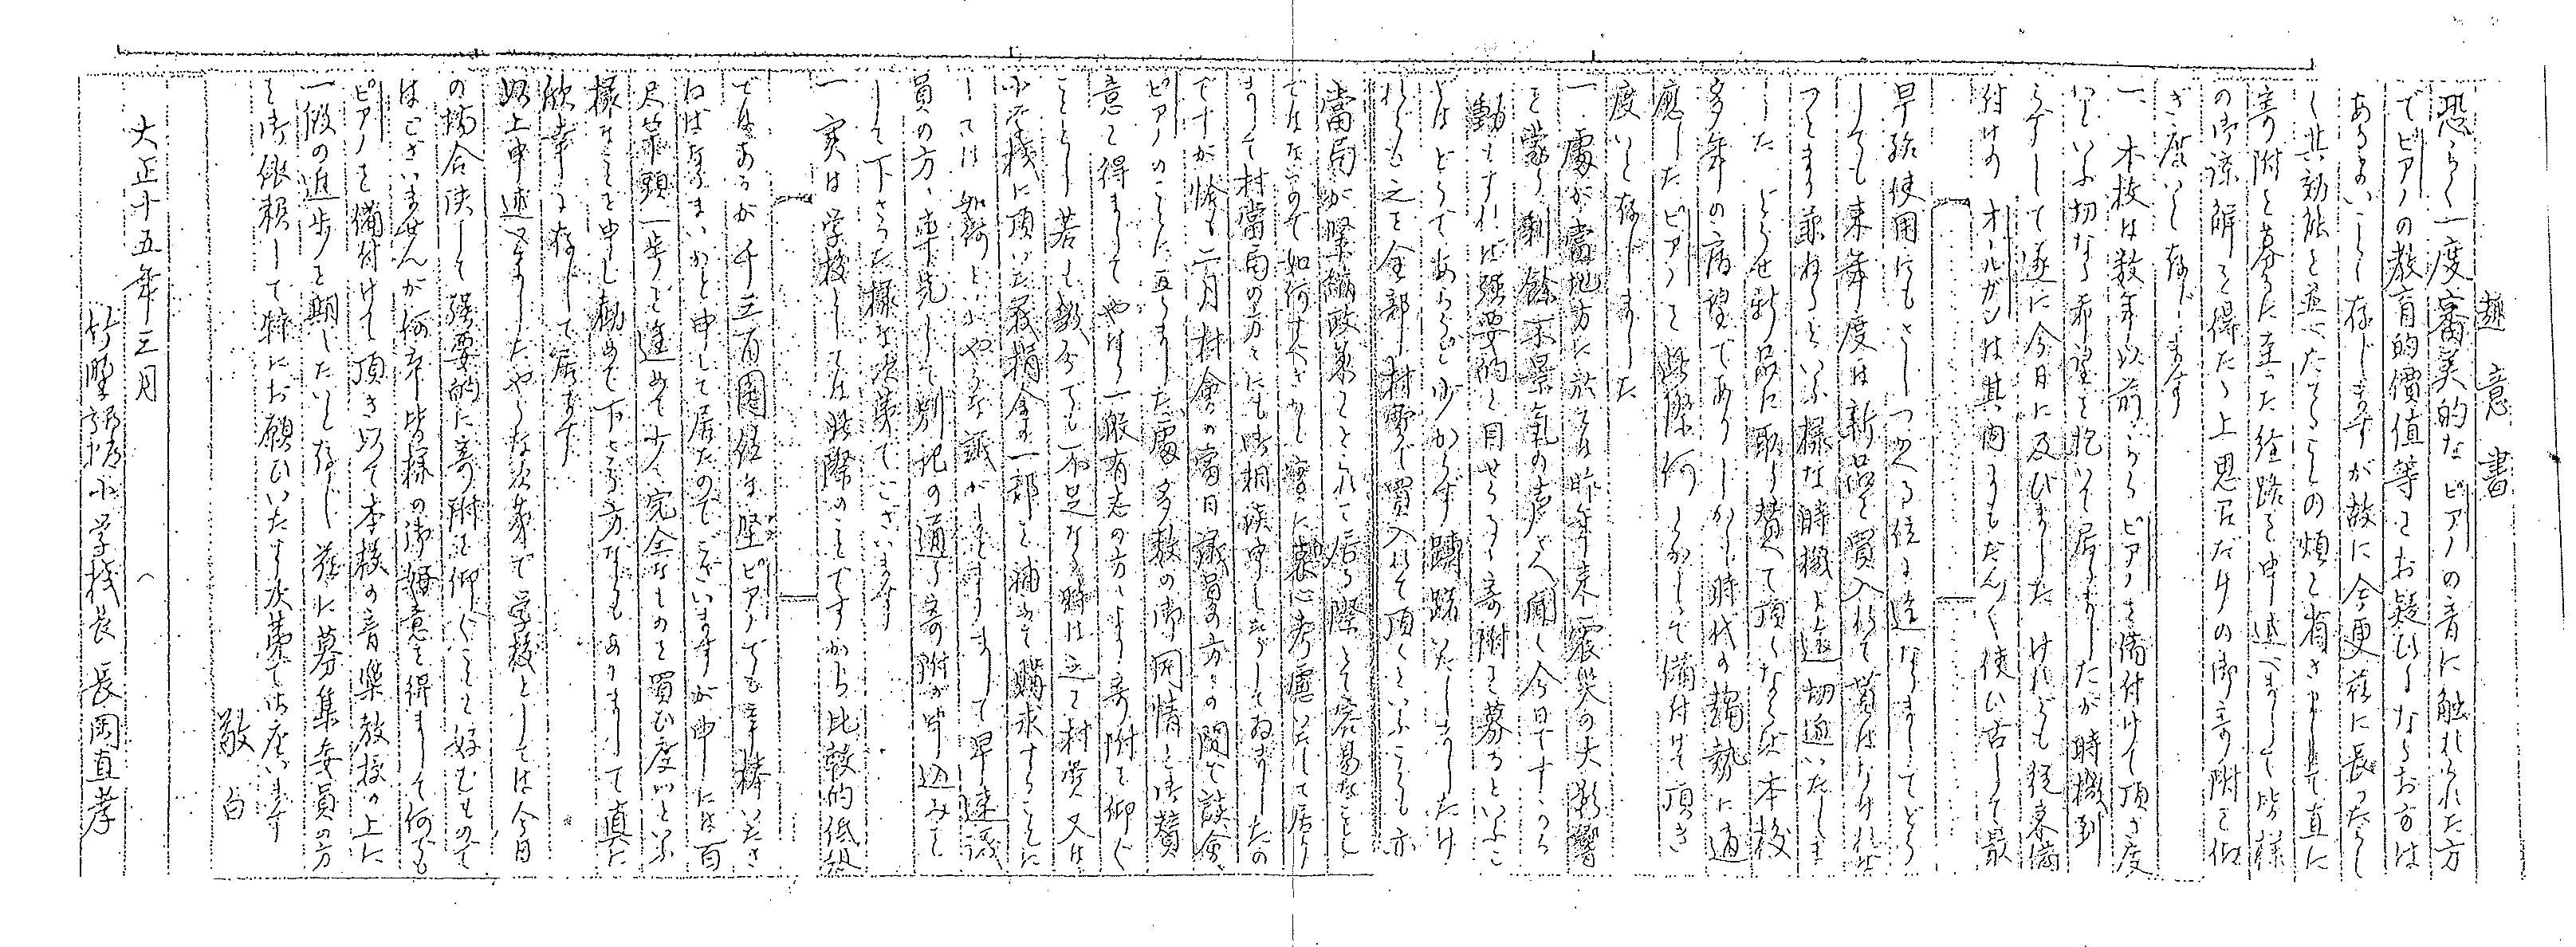 趣意書
恐らく一度審美的なピアノの音に触れられた方
でピアノの教育的價値等をお疑ひになるお方は
あるまいとく存じますが故に今更茲に長つたらし
く其効能を並べたてることの煩を省きまして直に
寄附を募るに至つた経路を申述べまして皆様
の御諒解を得たる上思召だけの御寄附を仰
ぎ度いと存じます
一、本校は数年以前からピアノを備付けて頂き度
いといふ切なる希望を抱いて居りましたが時機到
らずして遂に今日に及びました けれども従来備
付けのオールガンは其内にもだんだん使い古して最
早殆使用にもさしつかへる位に達なりましてどう
しても来年度は新品を買入れて貰はなければ
つとまり兼ねるといふ様な時機に逼切迫いたしま
した どうせ新品に取り替へて頂くならば本校
多年の希望でありしかも時代の趨勢に適
應したピアノを此際何とかして備付けて頂き
度いと存じました
一、處が當地方に於ては昨年来震災の大影響
を蒙り剰餘不景氣の声さへ聞く今日ですから
動もすれば強要的と目せらるゝ寄附を募るといふこ
とはどうであらうと少からず躊躇いたしましたけ
れども之を全部村費で買入れて頂くといふことも亦
當局が緊縮政策をとられて居る際とて容易なこと
ではないので如何すべきかと實に苦心考慮いたして居り
まして村當局の方々にも御相談申し上げてゐました
ですが恰も二月村會の當日議員の方々の間で談會
ピアノのことに亙りました處多数の御同情と御賛
意を得ましてやはり一般有志の方々より寄附を仰ぐ
ことゝし若し幾分でも不足なる時は之を村費又は
小学校に頂いた義捐金の一部を補ふて購求することに
しては如何といふやうな議がまとまりまして早速議
員の方々率先して別記の通り寄附が申込みを
して下さつた様な次第でございます
一、実は学校としては此際のことですから比較的低級
ではあるが千三百圓位な竪ピアノでも辛棒いたさ
ねばなるまいかと申して居たのでございますが中には百
尺竿頭一歩を進めて少々完全なものを買ひ度いといふ
様なことを申し勧めて下さる方などもありまして真に
欣幸に存じて居ます
以上申述べましたやうな次第で学校としては今日
の場合決して強要的に寄附を仰ぐことを好むもので
はございませんが何卒皆様の御好意を得まして何でも
ピアノを備付けて頂き以て本校の音楽教授の上に
一段の進歩を期したいと存じ茲に募集委員の方
を御依頼して特にお願ひいたす次第で御座います
敬白
大正十五年三月
竹野尋常小学校長 長岡直孝